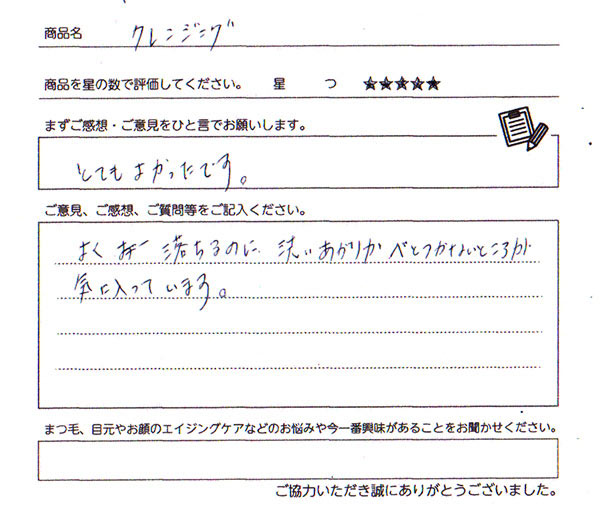 商品名 クレンジング
商品を星の数で評価してください。 星 つ ★★★★★
まずご感想・ご意見をひと言でお願いします。
とてもよかったです。
ご意見、ご感想、ご質問等をご記入ください。
よく 落ちるのに、洗いあがりがべとつかないところが
気に入っています。
まつ毛、目元やお顔のエイジングケアなどのお悩みや今一番興味があることをお聞かせください。
ご協力いただき誠にありがとうございました。